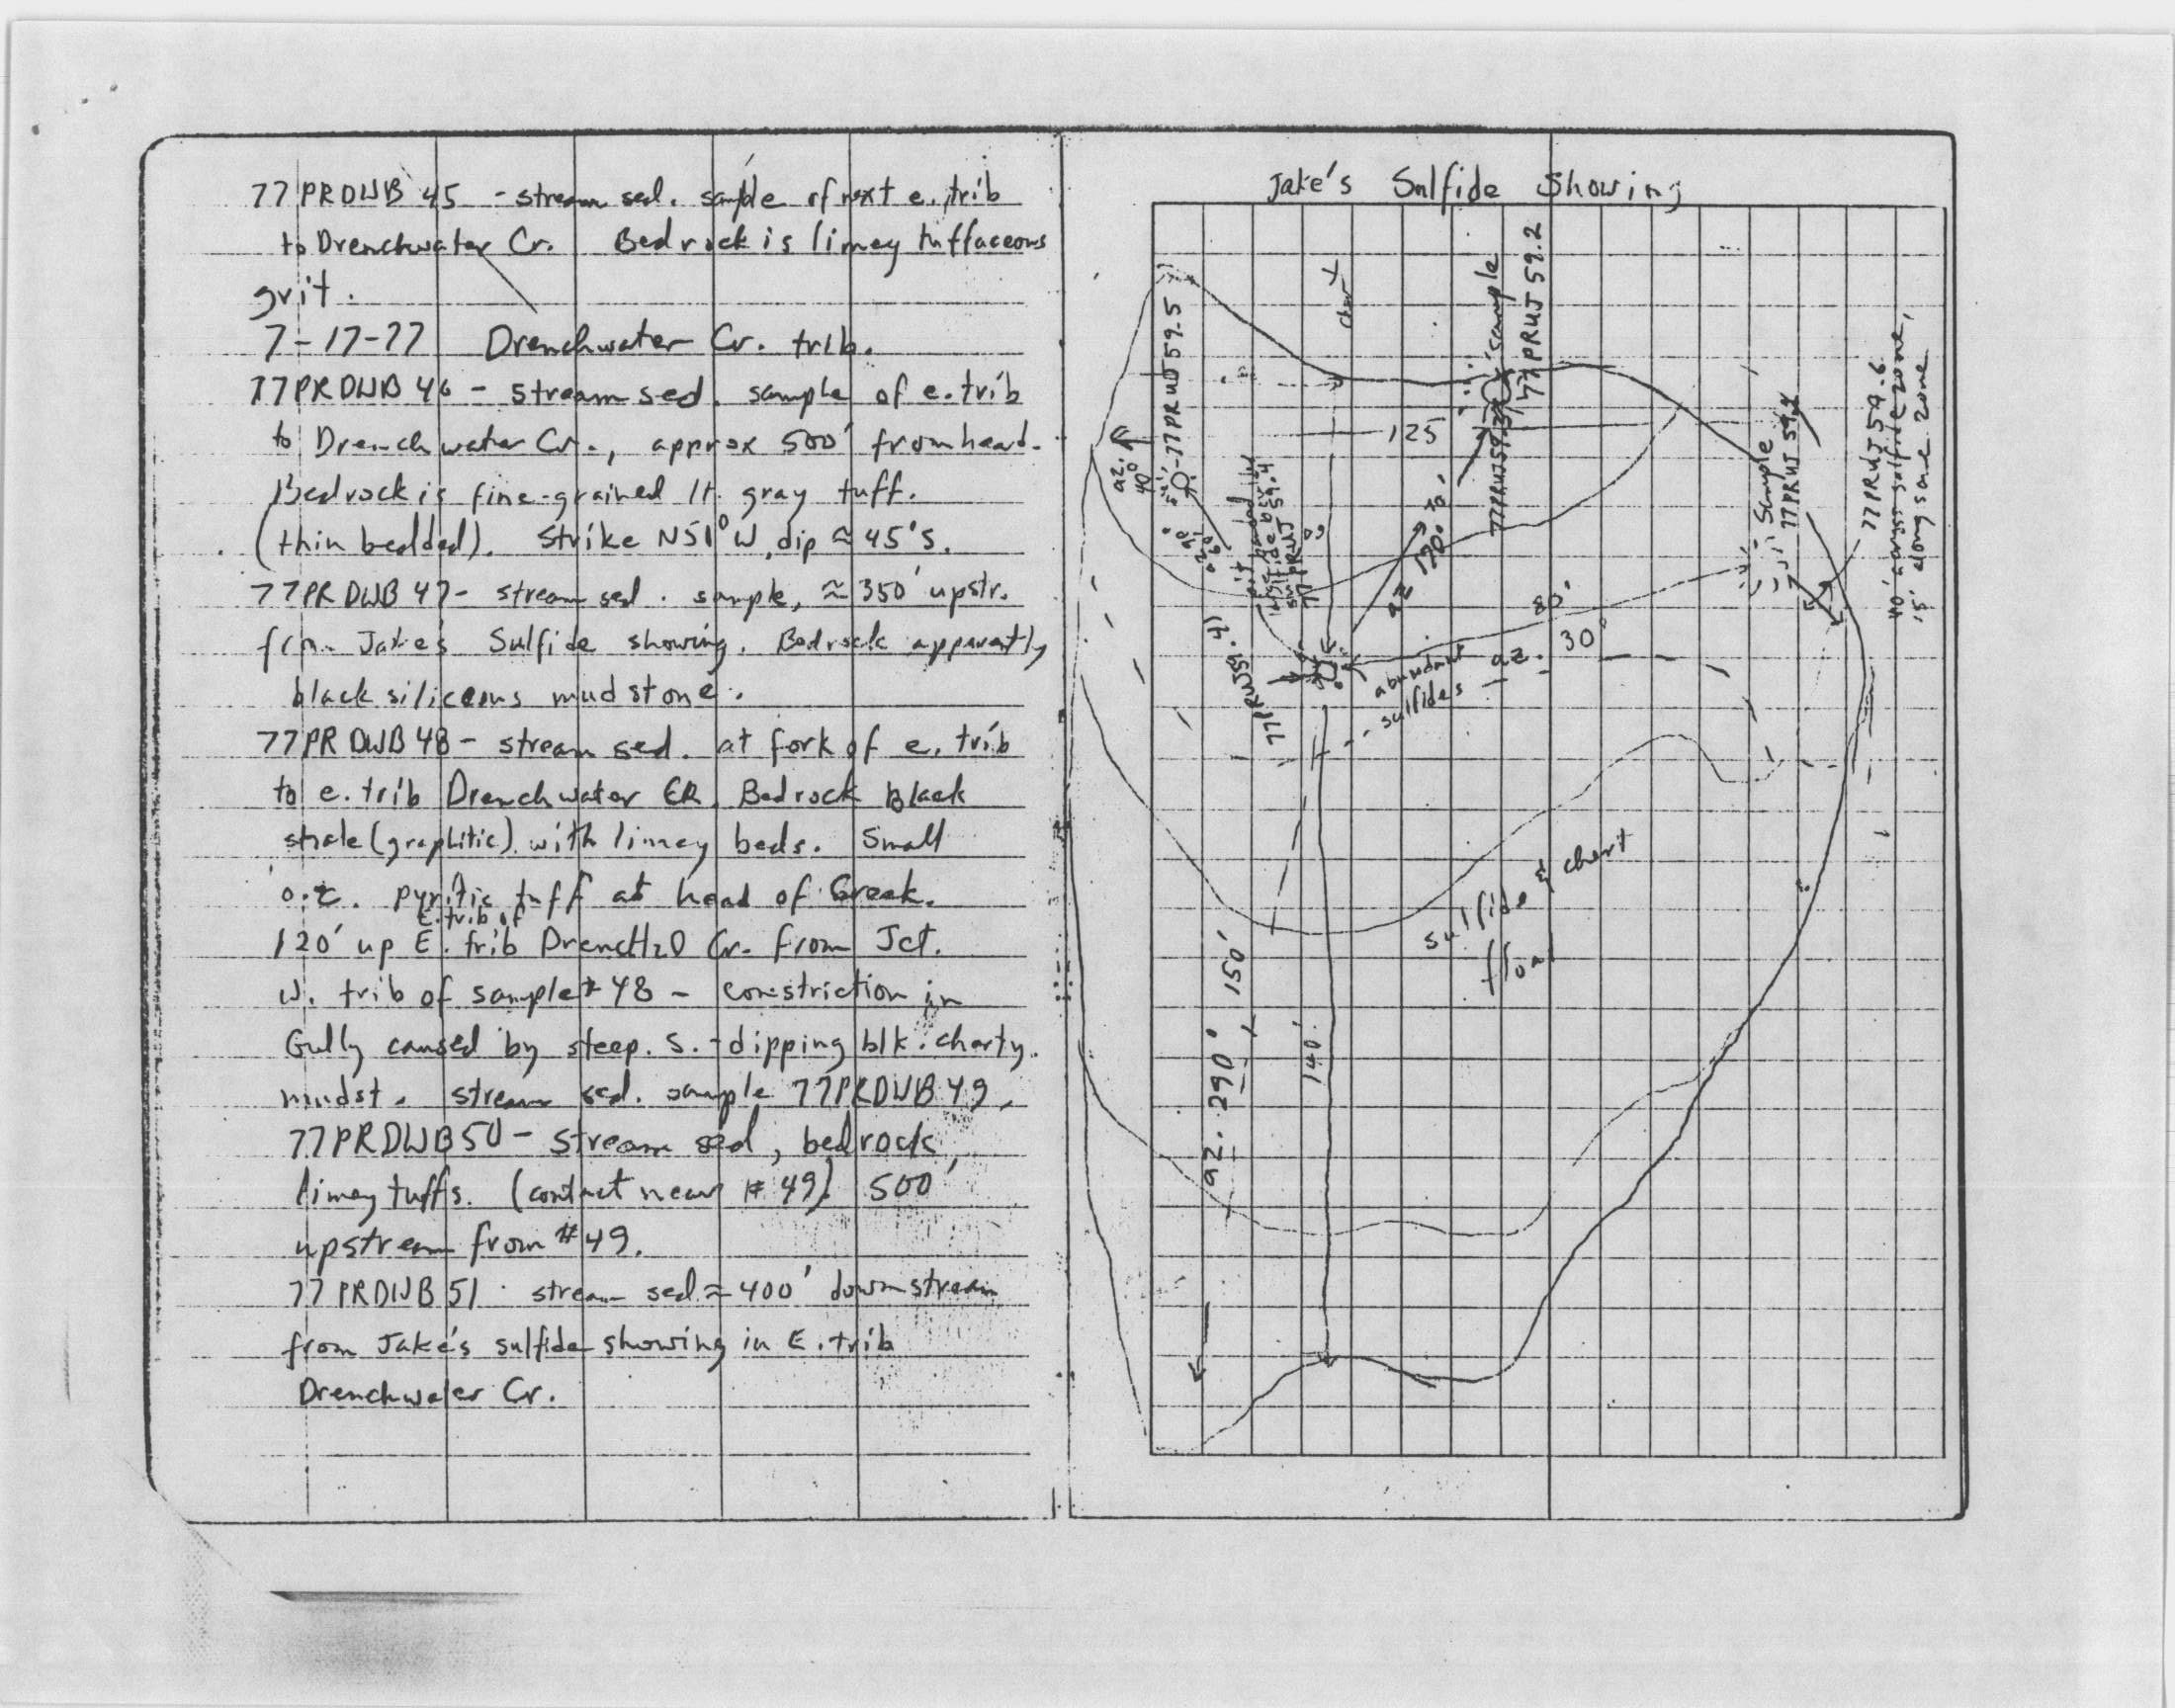 77PRDWB 45 - stream sed. sample of next e. trib
to Drenchwater Cr. Bedrock is limey tuffaceous
grit.
7-17-77 Drenchwater Cr. trib.
77PRDWB 46 - stream sed. sample of e. trib
to Drenchwater Cr., approx 500' from head.
Bedrock is fine-grained lt. gray tuff.
(thin bedded). Strike N51°W, dip ≈ 45°S.
77PRDWB 47 - stream sed. sample, ≈ 350' upstr.
from Jake's Sulfide showing. Bedrock apparently
black siliceous mudstone.
77PRDWB 48 - stream sed. at fork of e. trib
to e. trib Drenchwater CR. Bedrock Black
shale (graphitic) with limey beds. Small
o.c. pyritic tuff at head of Creek.
E. trib of
120' up E. trib DrencH2O Cr. from Jct.
w. trib of sample # 48 - constriction in
Gully caused by steep. S.-dipping blk. cherty
mudst. stream sed. sample 77PRDWB 49.
77PRDWB 50 - stream sed, bedrock
limey tuffs. (contact near # 49) 500'
upstream from # 49.
77PRDWB 51 stream sed ≈ 400' downstream
from Jake's sulfide showing in E. trib
Drenchwater Cr.
Jake's Sulfide Showing
77PRUJ 59.5
az.
40°
chert
sample
77PRUJ 59.2
125
77PRUJ59.3
az 170° 70'
80'
az. 30°
abundant
sulfides
Sample
77PRUJ 59.
77PRUJ 59.6
40' across sulfide zone,
15' along same zone
77PRUJ59.41
77PRUJ 59.4
sulfide & chert
float
az. 290° 150'
140'